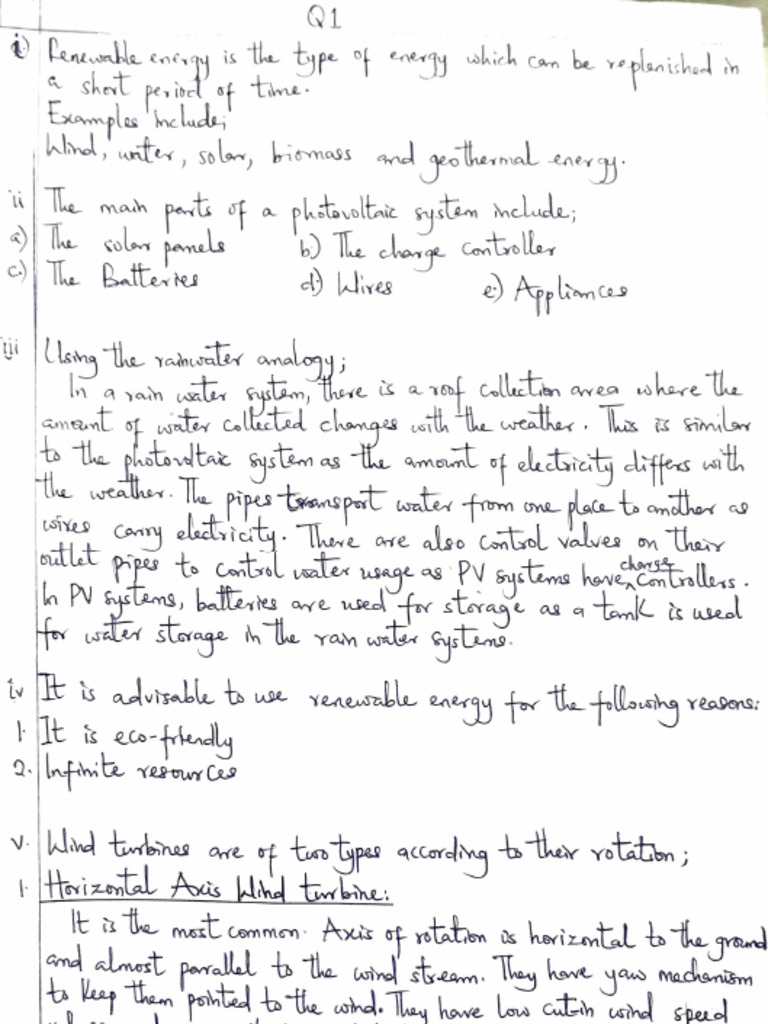 Q1
i) Renewable energy is the type of energy which can be replenished in
a short period of time.
Examples include;
Wind, water, solar, biomass and geothermal energy.
ii The main parts of a photovoltaic system include;
a) The solar panels b) The charge controller
c.) The Batteries d) Wires e) Appliances
iii Using the rainwater analogy;
In a rain water system, there is a roof collection area where the
amount of water collected changes with the weather. This is similar
to the photovoltaic system as the amount of electricity differs with
the weather. The pipes transport water from one place to another as
wires carry electricity. There are also control valves on their
outlet pipes to control water usage as PV systems have charge controllers.
In PV systems, batteries are used for storage as a tank is used
for water storage in the rain water systems.
iv It is advisable to use renewable energy for the following reasons:
1. It is eco-friendly
2. Infinite resources
v. Wind turbines are of two types according to their rotation;
1. Horizontal Axis Wind turbine:
It is the most common. Axis of rotation is horizontal to the ground
and almost parallel to the wind stream. They have yaw mechanism
to keep them pointed to the wind. They have low cutin wind speed